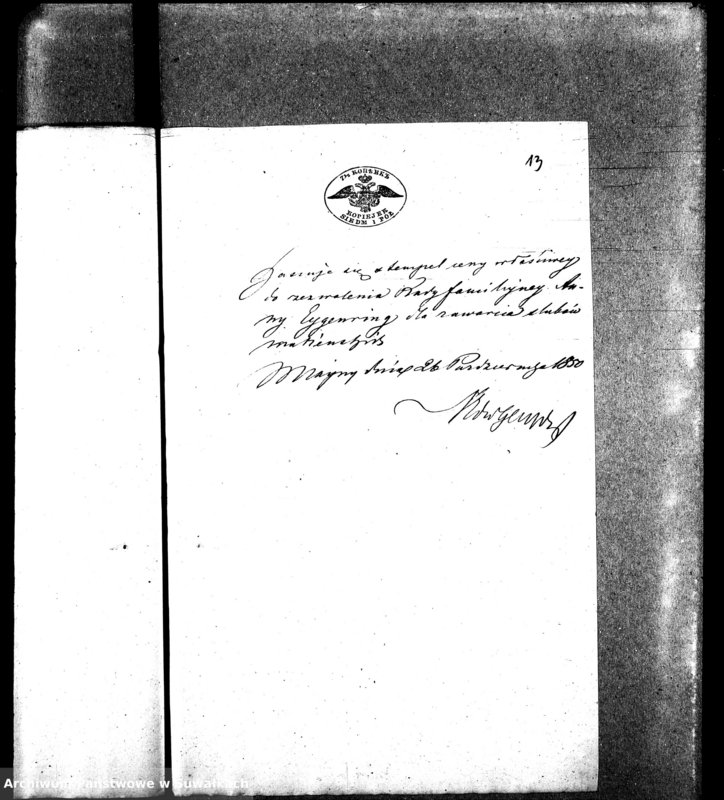 13
7½ КОПѢЕКЪ
KOPIEJEK
SIEDM I PÓŁ
Kasuje się stempel ceny właściwey
do zezwolenia Rady familijney An-
ny Eygenring dla zawarcia ślubów
małżeńskich
dnia 26 Pazdziernika 1850
Archiwum Państwowe w Suwałkach